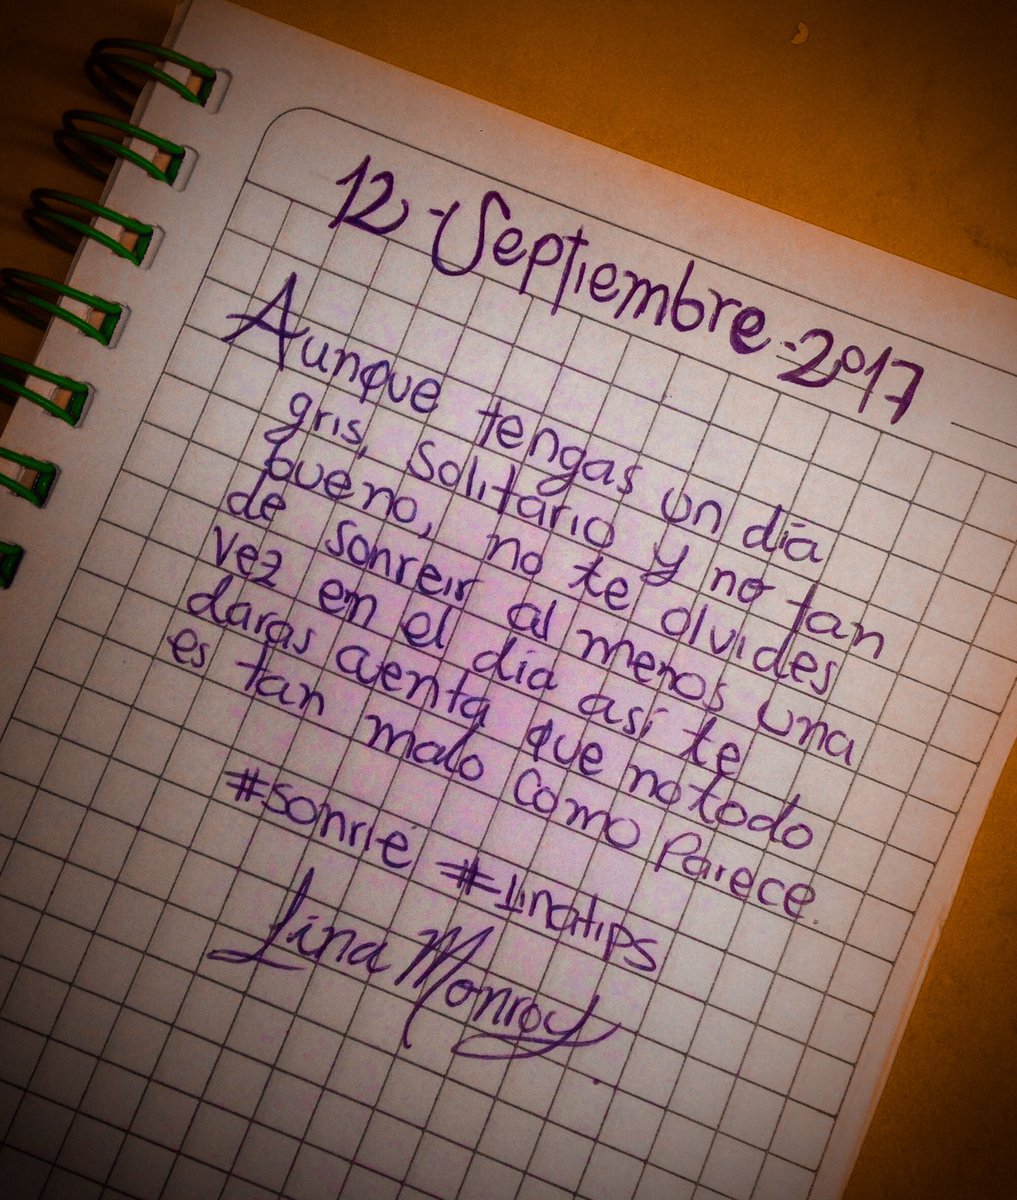 12-Septiembre-2017
Aunque tengas un día
gris, solitario y no tan
bueno, no te olvides
de sonreir al menos una
vez en el día así te
daras cuenta que no todo
es tan malo como parece.
#sonríe #linatips
Lina Monroy